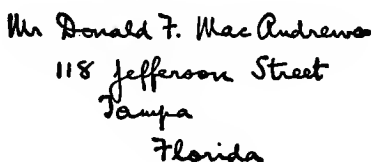 Mr Donald F. Mac Andrews
118 Jefferson Street
Tampa
Florida